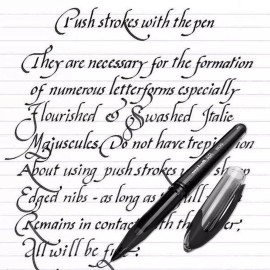 Push strokes with the pen
They are necessary for the formation
of numerous letterforms especially
Flourished & Swashed Italic
Majuscules Do not have
About using push strokes
Edged nibs - as long as
Remains in contact with the
All will be